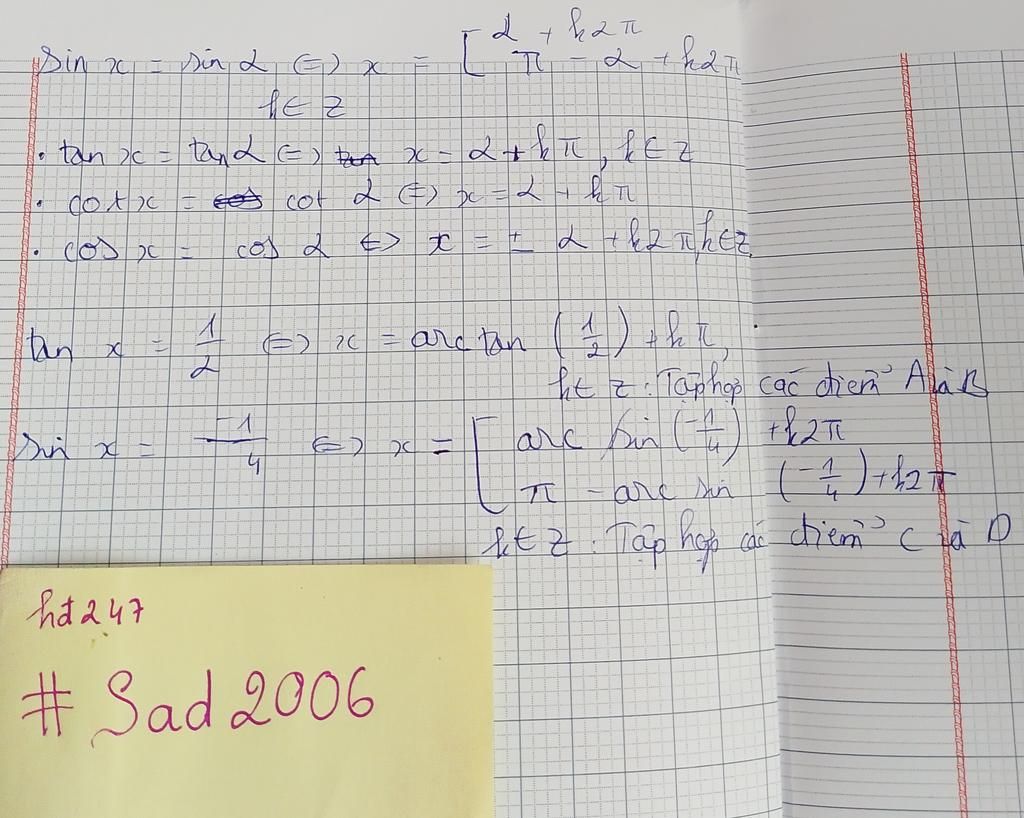 sin x = sin α <=> x = [ α + k2π
π - α + k2π
k ∈ Z
• tan x = tan α <=> x = α + kπ, k ∈ Z
• cot x = cot α <=> x = α + kπ
• cos x = cos α <=> x = ± α + k2π, k ∈ Z
tan x = 1/2 <=> x = arc tan (1/2) + kπ,
k ∈ Z : Tập hợp các điểm A là B
sin x = -1/4 <=> x = [ arc sin (-1/4) + k2π
π - arc sin (-1/4) + k2π
k ∈ Z : Tập hợp các điểm C là D
hd247
# Sad 2006